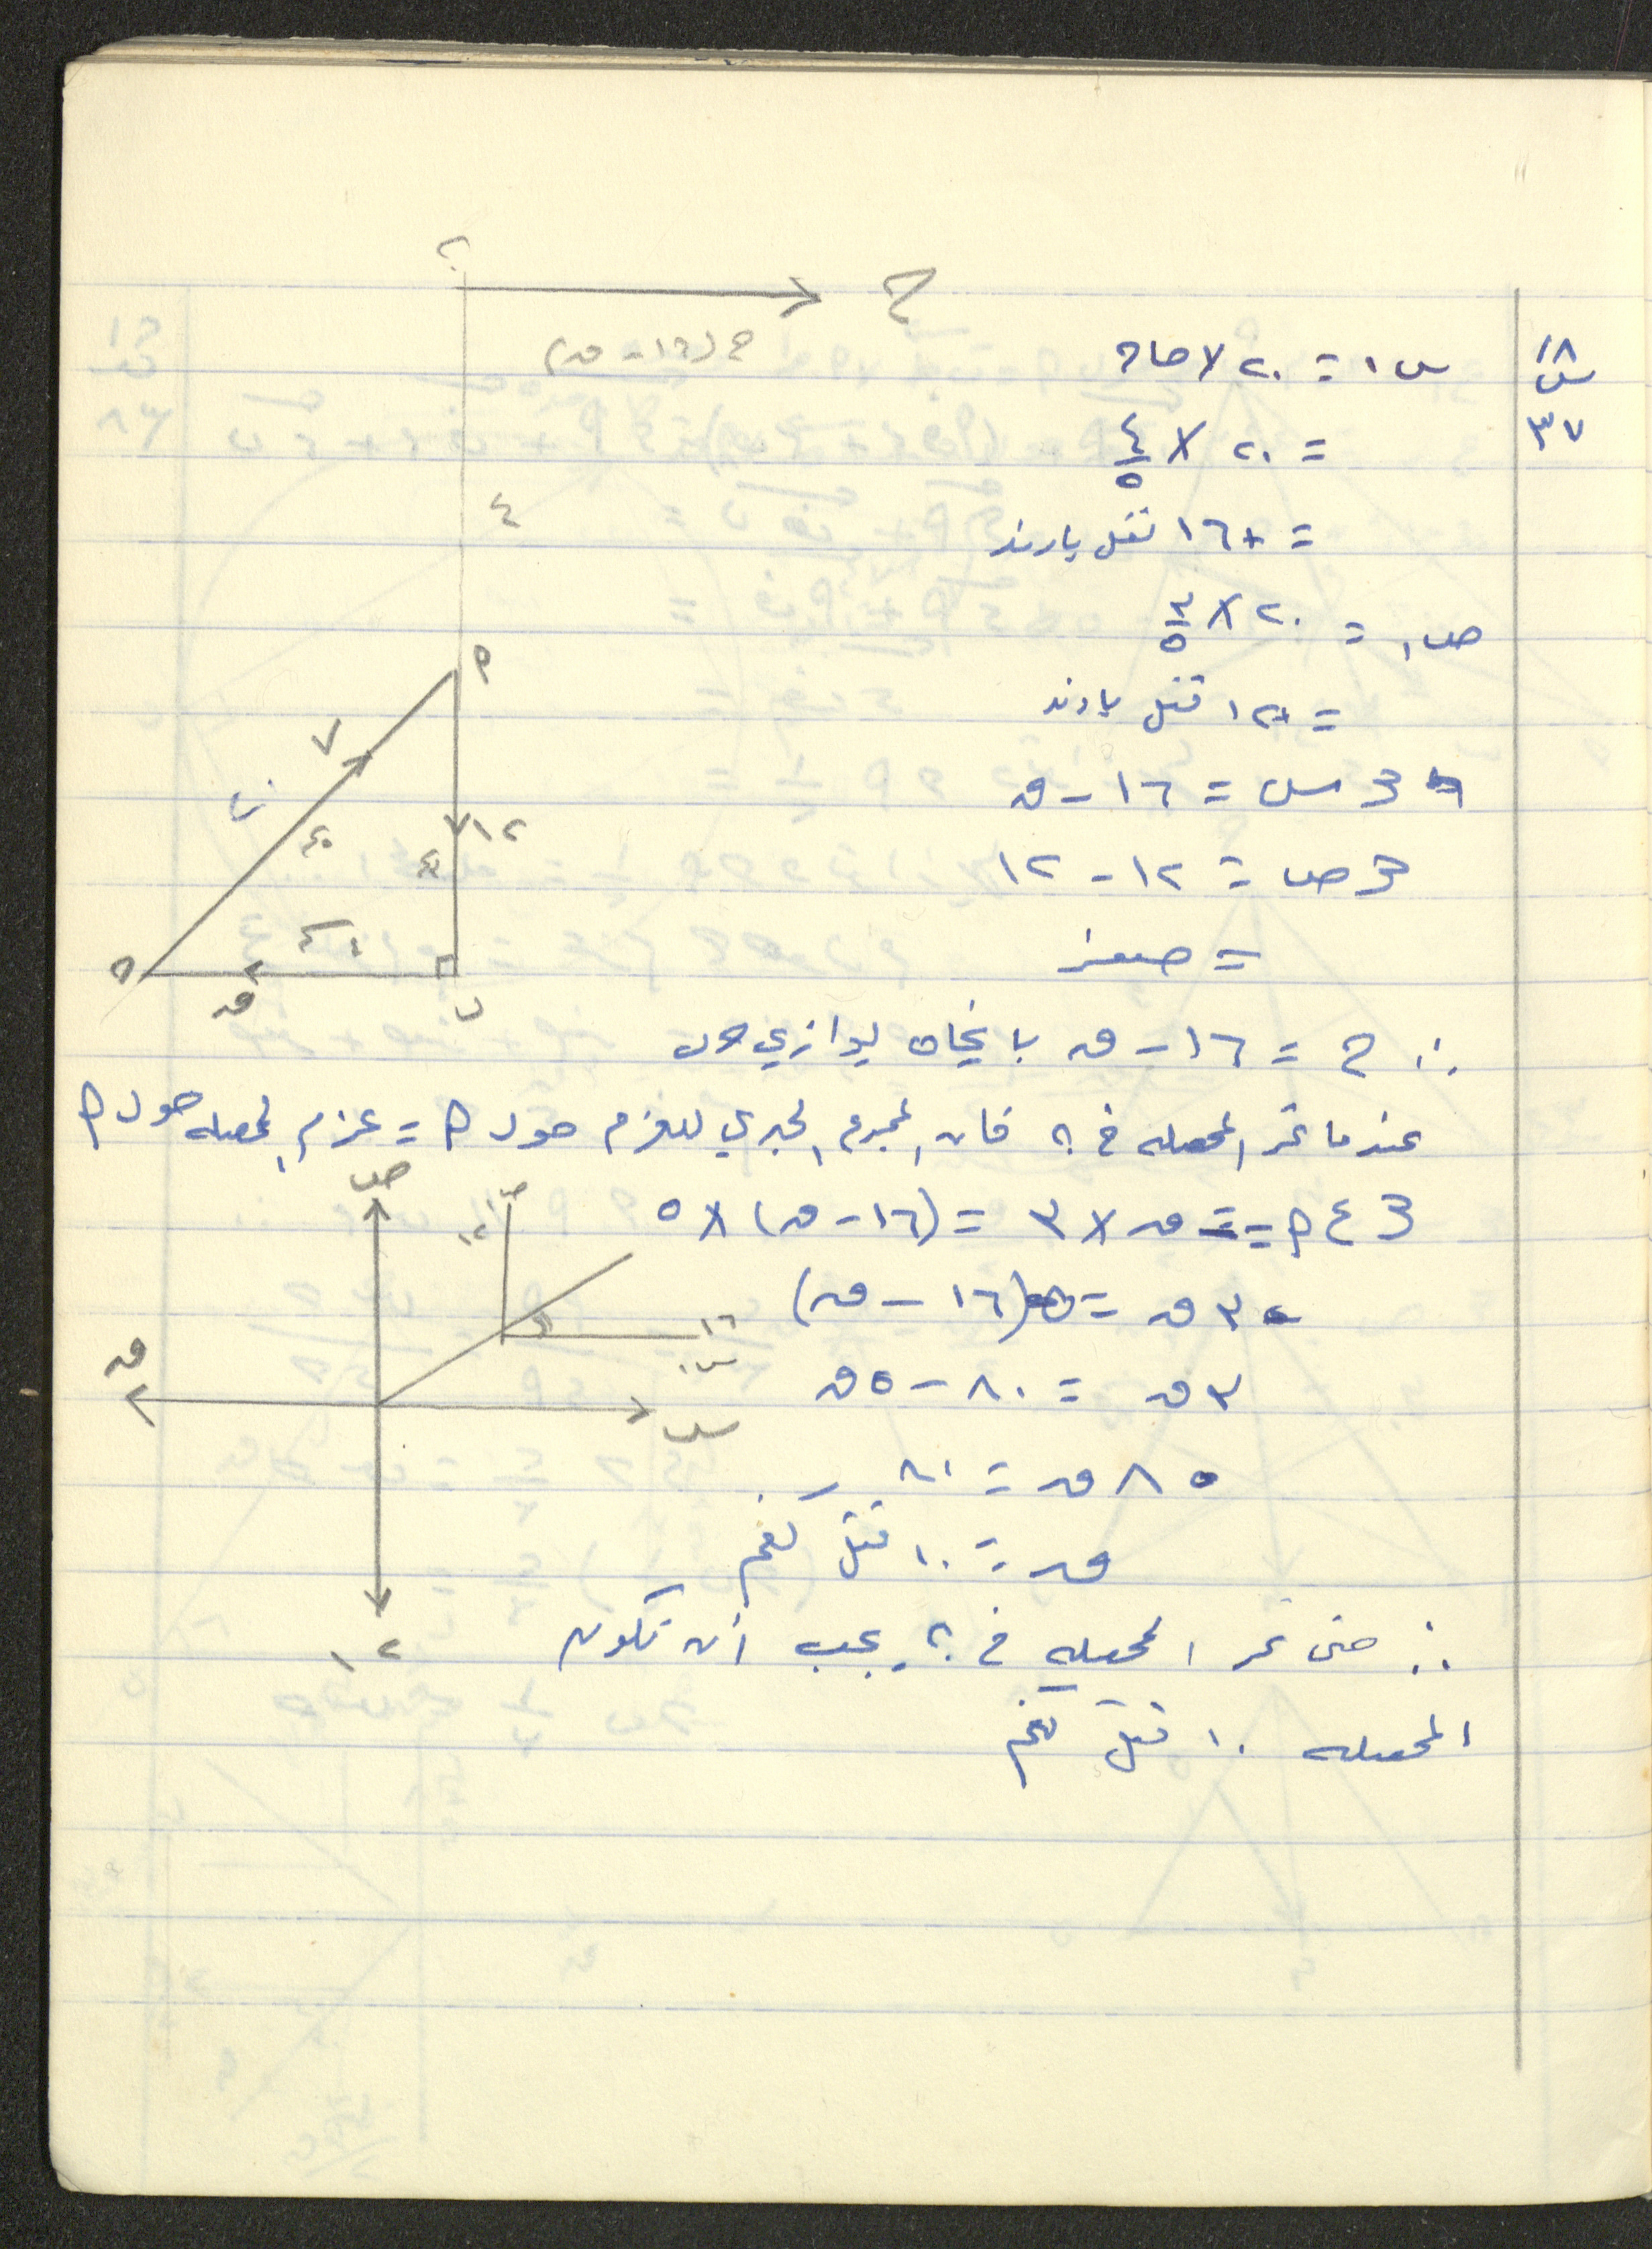 س١ = ٢٠ × جا ه
= ٢٠ × ٤/٥
= +١٦ ثقل باوند
ص١ = ٢٠ × ٣/٥
= ١٢ ثقل باوند
س = ١٦ - ق
ص = ١٢ - ١٢
= صفر
∴ ح = ١٦ - ق باتجاه يوازي
عندما تمر المحصله في ؟ فان المجموع الجبري للعزوم حول م = عزم المحصله حول م
= ق × ٣ = (١٦ - ق) × ٥
٣ ق = ٥(١٦ - ق)
٣ ق = ٨٠ - ٥ ق
٨ ق = ٨٠
ق = ١٠ ثقل كغم
∴ حتى تمر المحصله في ؟ يجب ان تكون
المحصله ١٠ ثقل كغم
ش
٣٧
ح
ح (١٦ - ق)
٤
٢٠
١٢
ق
ص
س
ق
١٢
ص١
١٢
١٦
س١